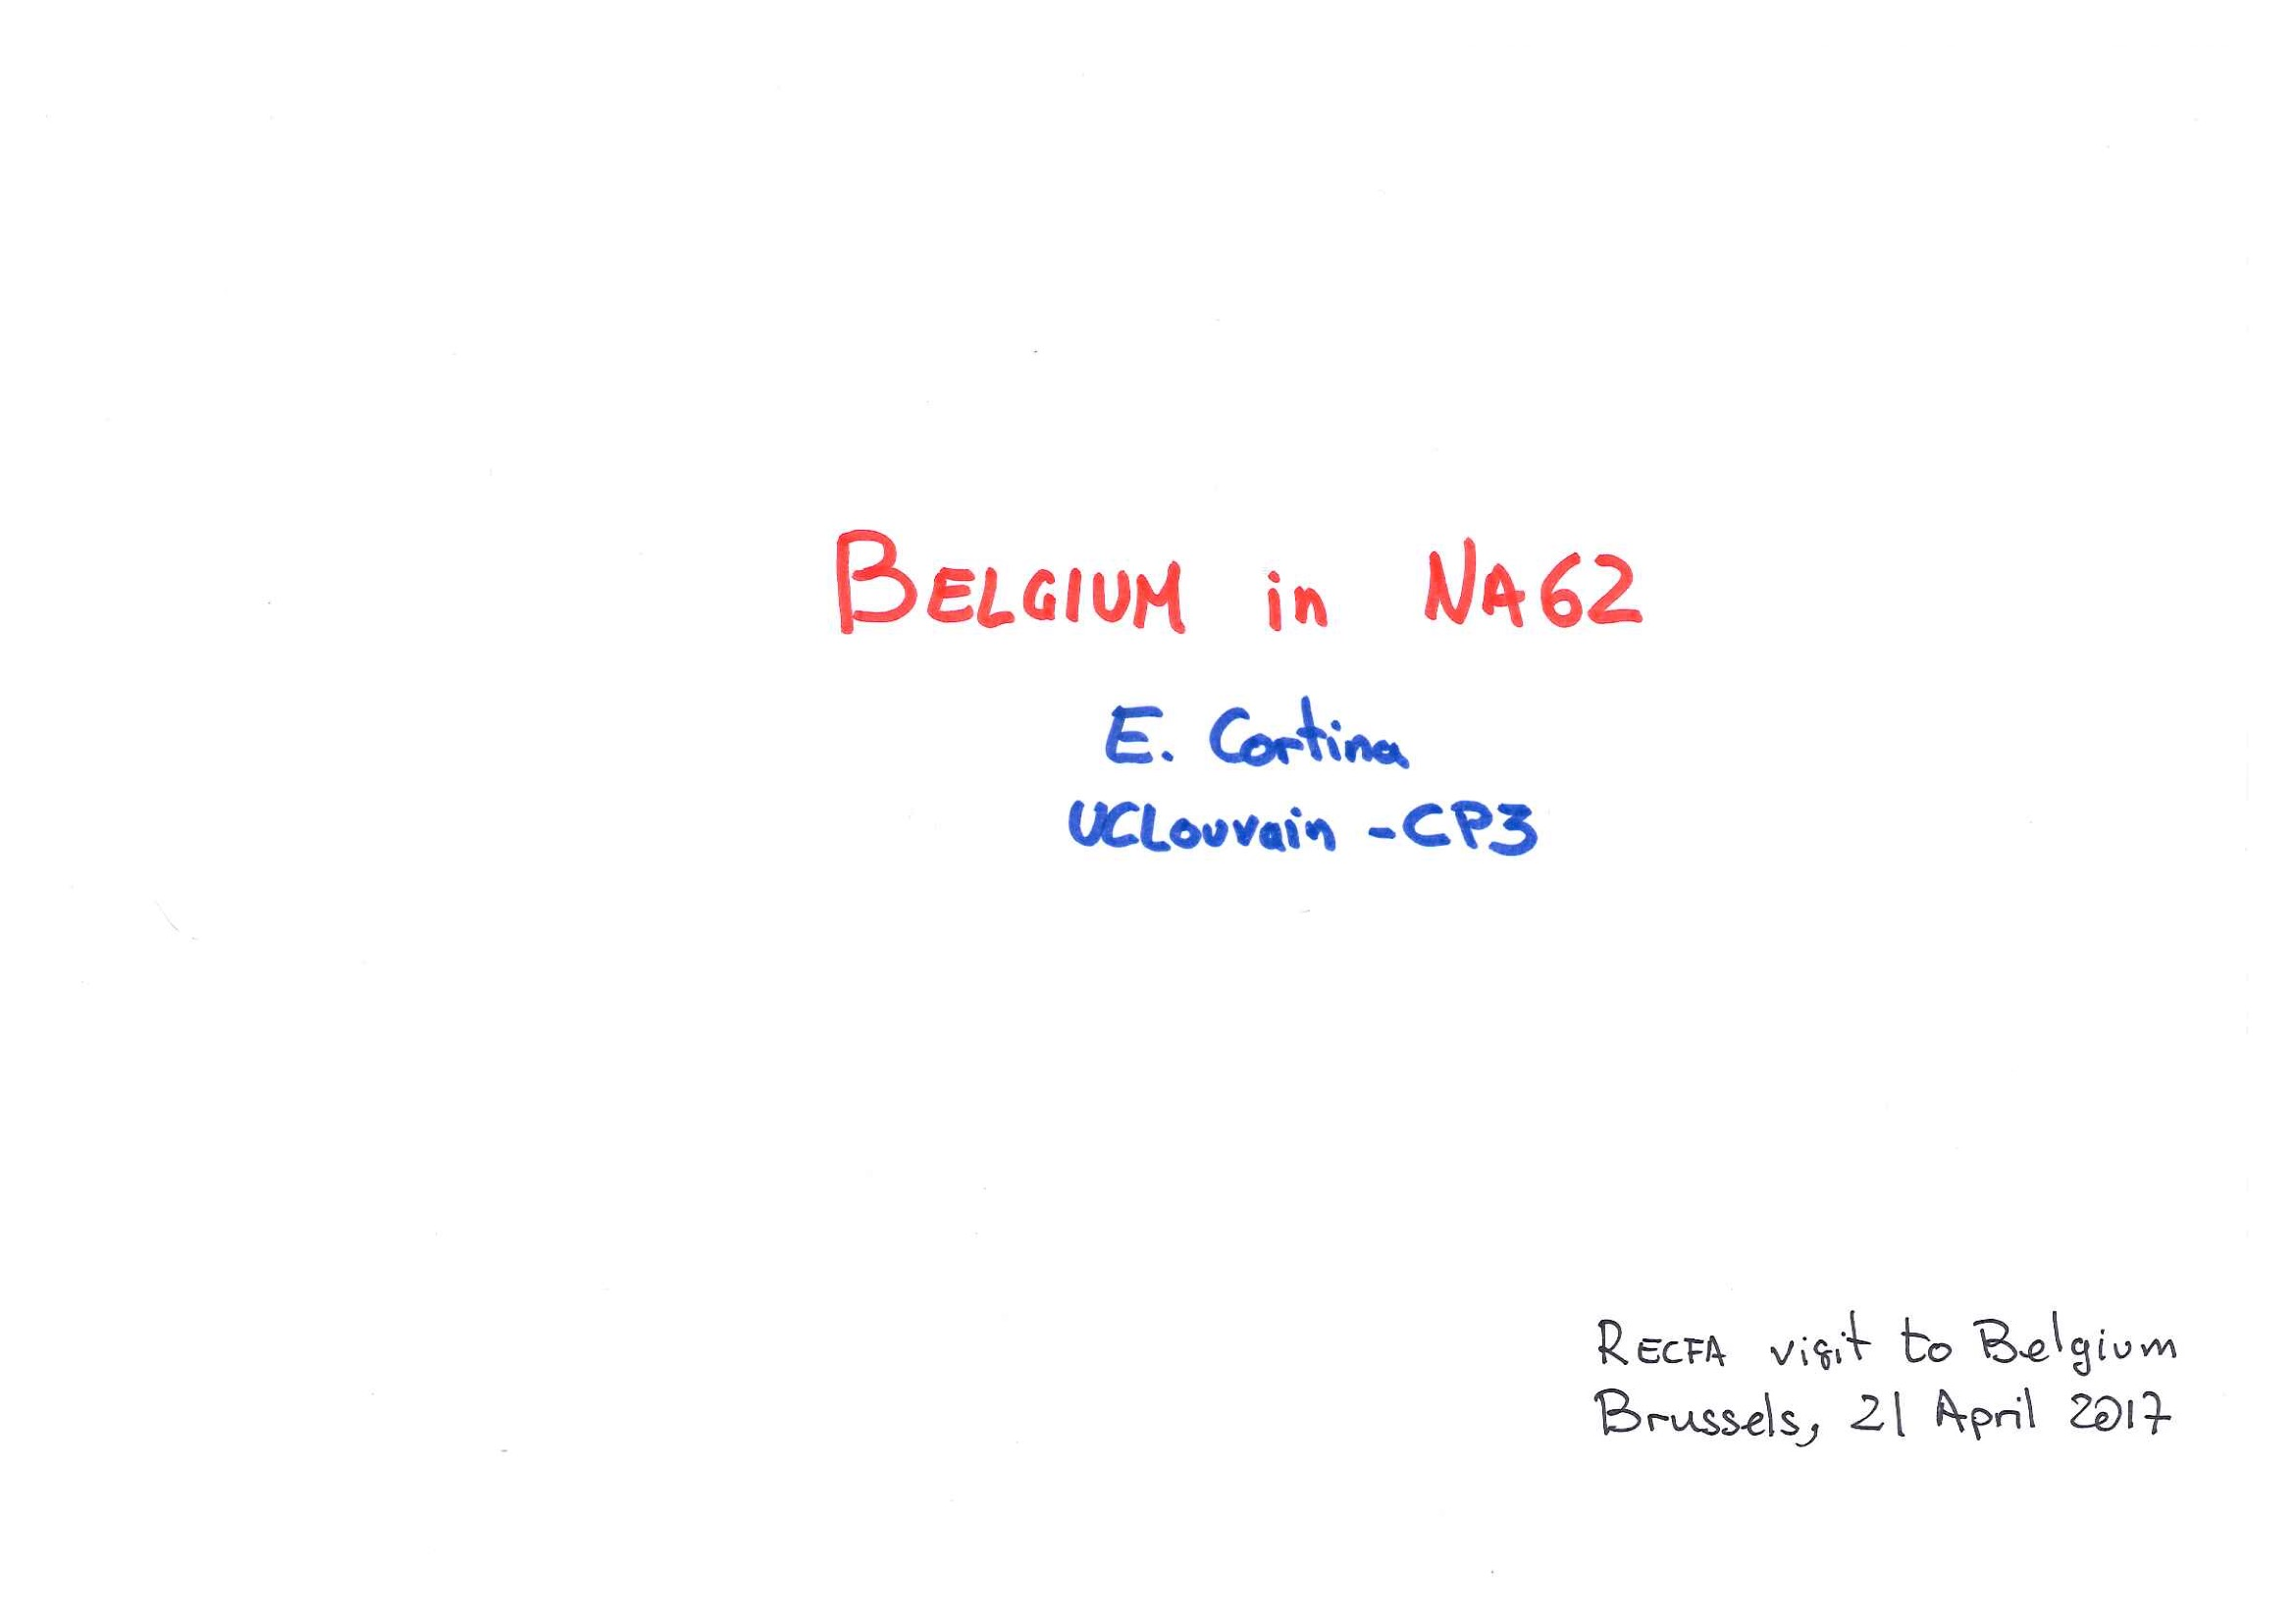 BELGIUM in NA62
E. Cortina
UCLouvain - CP3
RECFA visit to Belgium
Brussels, 21 April 2017